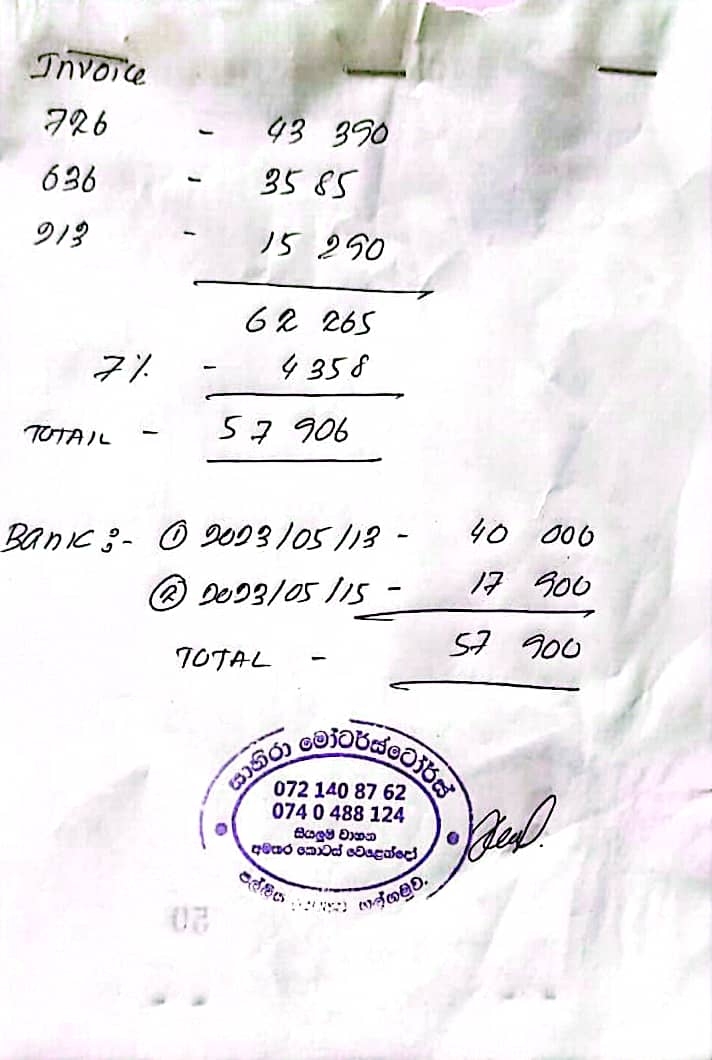 Invoice
726 - 43 390
636 - 3585
913 - 15 290
62 265
7% - 4358
TOTAIL - 57 906
BANK :- ① 2023/05/13 - 40 000
② 2023/05/15 - 17 900
TOTAL - 57 900
සාහිරා මෝටර්ස්ටෝර්ස්
072 140 87 62
074 0 488 124
සියලුම වාහන
අමතර කොටස් වෙළෙන්දෝ
පල්ලිය ගල්ගමුව.
50